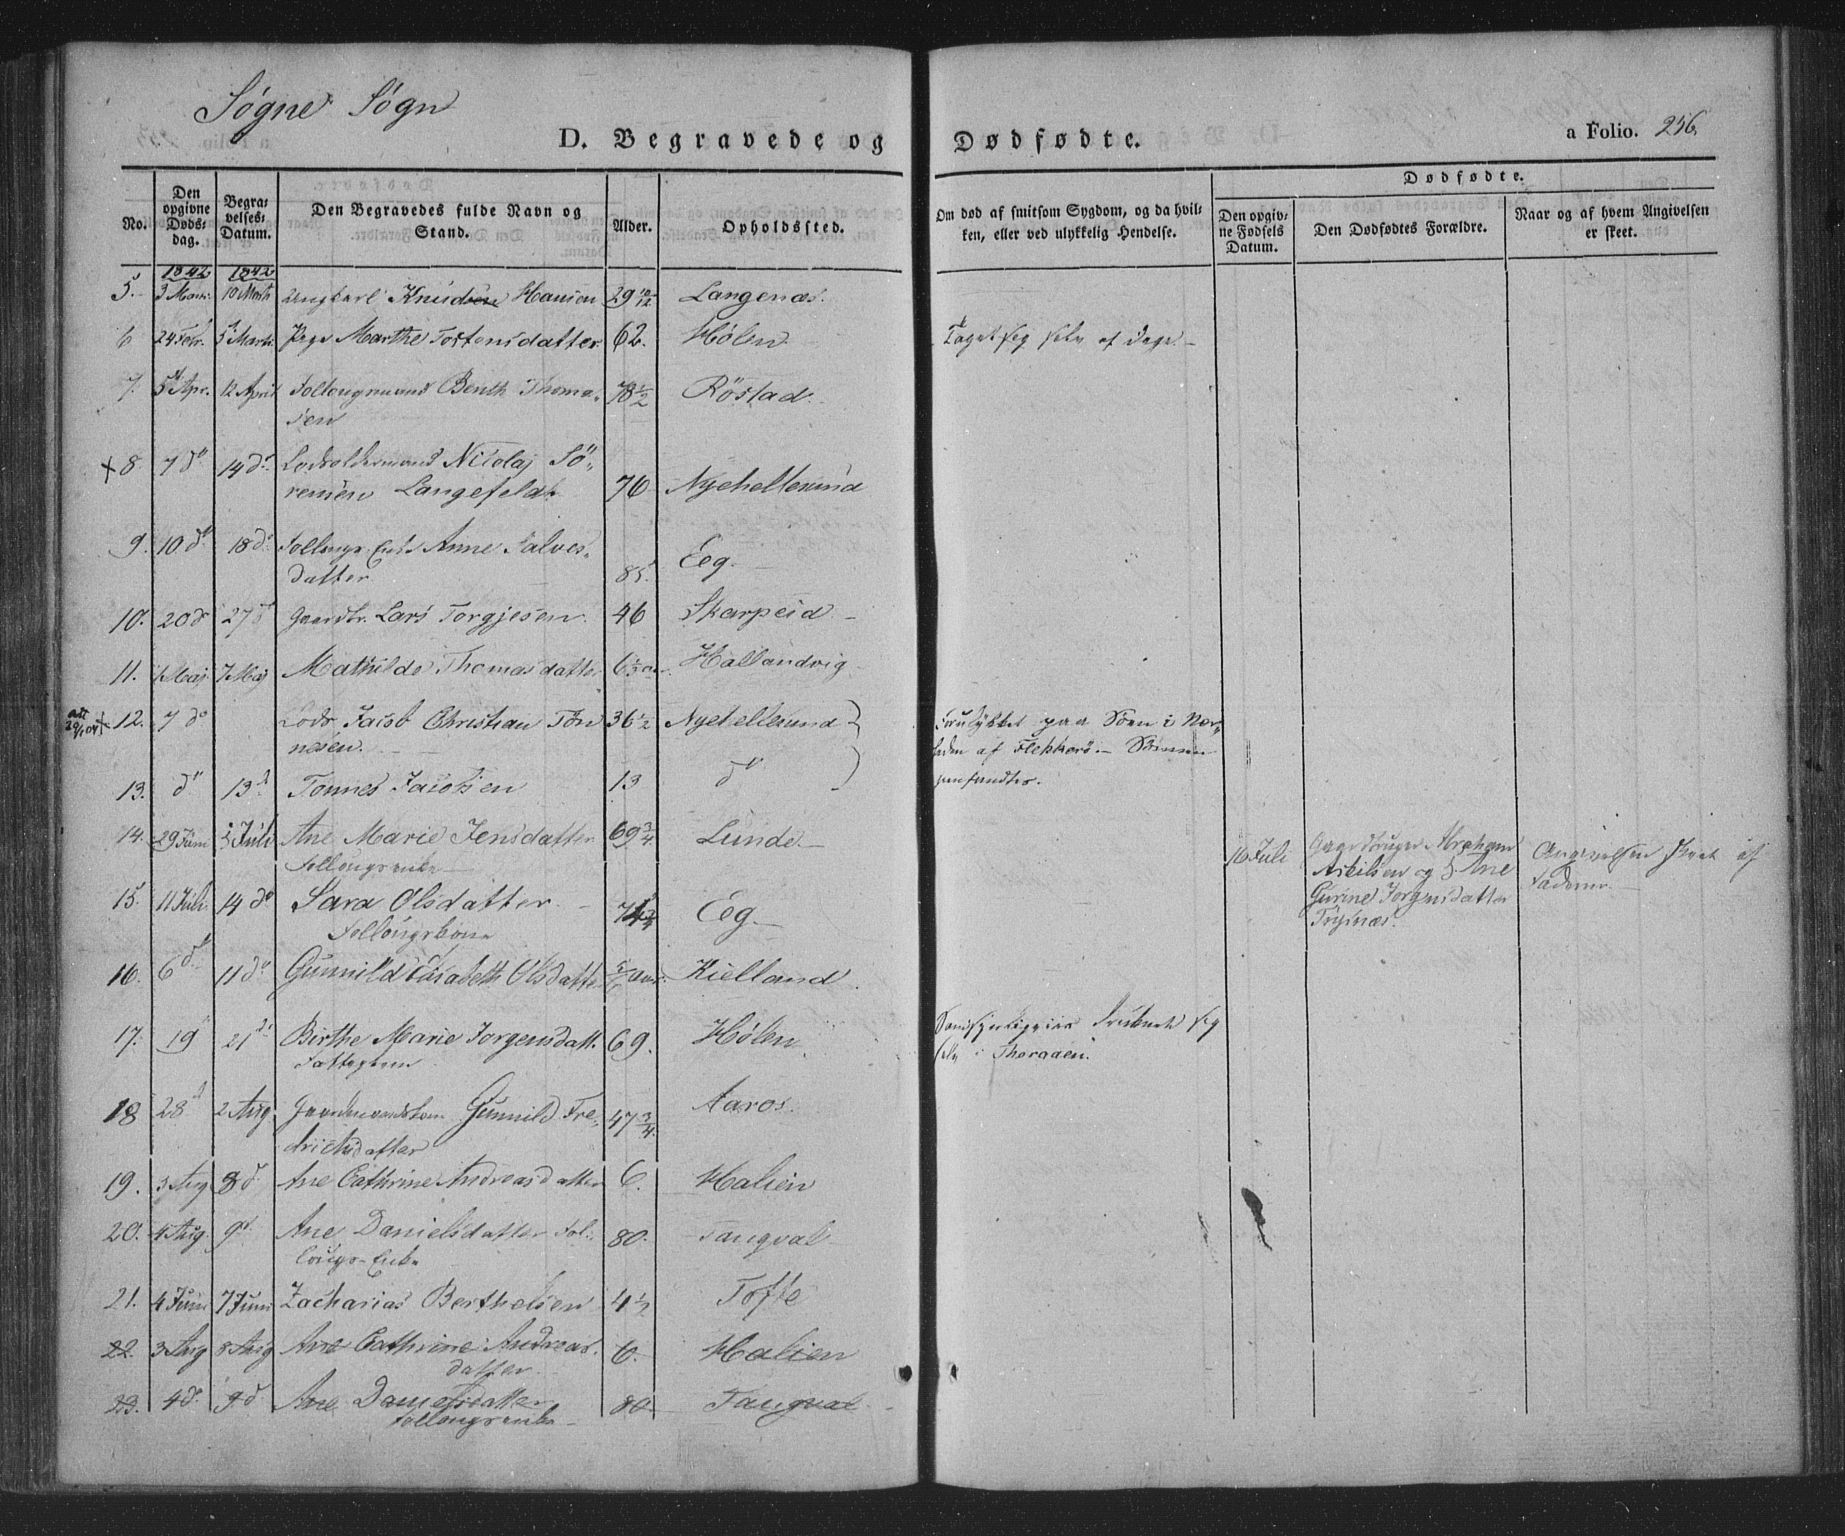 Søgne Sogn
D. Begravede og Dødfødte. a Folio. 256.
Dødfødte.
No. | Den opgivne Døds-dag. | Begra-velses-Datum. | Den Begravedes fulde Navn og Stand. | Alder. | Opholdssted. | Om død af smitsom Sygdom, og da hvil-ken, eller ved ulykkelig Hendelse. | Den opgiv-ne Fødsels Datum. | Den Dødfødtes Forældre. | Naar og af hvem Angivelsen er skeet.
1842 1842
5. 3 Marts 10 Marts Ungkarl Knudsen Hansen 29 10/12 Langenæs.
6 24 Febr. 5 Marts Pige Marthe Tostensdatter 62. Hølen Taget sig selv af Dage.
7. 5 Apr. 12 April Follougmand Benth Thoma-
sen 78 1/2 Röstad
+ 8. 7 d° 14 d° Lodsoldermand Nicolaj Sö-
rensen Langefeldt 76 Nyehellesund
9. 10 d° 18 d° Follougs Enke Anne Salves-
datter 85. Eeg.
10. 20 d° 27 d° Gaardbr. Lars Torgjesen 46 Skarpeid
11. 1 Maj 7 Maj Mathilde Thomasdatter 6 1/3 Hallandvig
12. 7 d° Lods Jacob Christian Tön
nesen. 36 1/2 Nyehellesund Forulykket paa Söen i Nær-
heden af Flekkerö.
13. d° 13 d Tönnes Jacobsen 13 d°
14. 29 Juni 5 Juli Ane Marie Jensdatter 69 3/4 Lunde
Follougsenke
16 Juli Gaardbruger Abraham
Askilsen og Ane
Gurine Jorgensdatter
Angivelsen skeet af
Faderen.
15. 11 Juli 14 d° Sara Olsdatter 74 Eeg
Follougskone
16. 6 d 11 d° Gunnild Elisabeth Olsdatter Kielland
17. 19 21 d Birthe Marie Jorgensdatt. 69. Hølen
selv i Thoraaen.
18 28 d 2 Aug. Gaardmandskone Gunnild Fre-
drichsdatter 47 3/4 Aaros.
19. 3 Aug 8 d Ane Cathrine Andreasdatter 6. Halien
20. 4 Aug 9 d Ane Danielsdatter Fol-
lougs-Enke 80. Tangval
21. 4 Juni 7 Juni Zacharias Berthelsen 4 1/2 Tofte
22. 3 Aug 8 Aug Ane Cathrine Andreas-
datter 6. Halien
23. 4 d. 9 d. Ane Danielsdatter 80 Tangval
Follougsenke